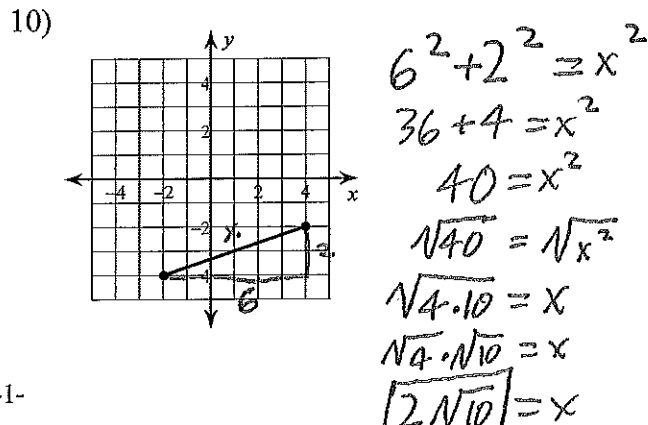 10)
y
4
2
-4 -2 2 4 x
-2
x
2
-4
6
6² + 2² = x²
36 + 4 = x²
40 = x²
√40 = √x²
√4·10 = x
√4·√10 = x
2√10 = x
-1-